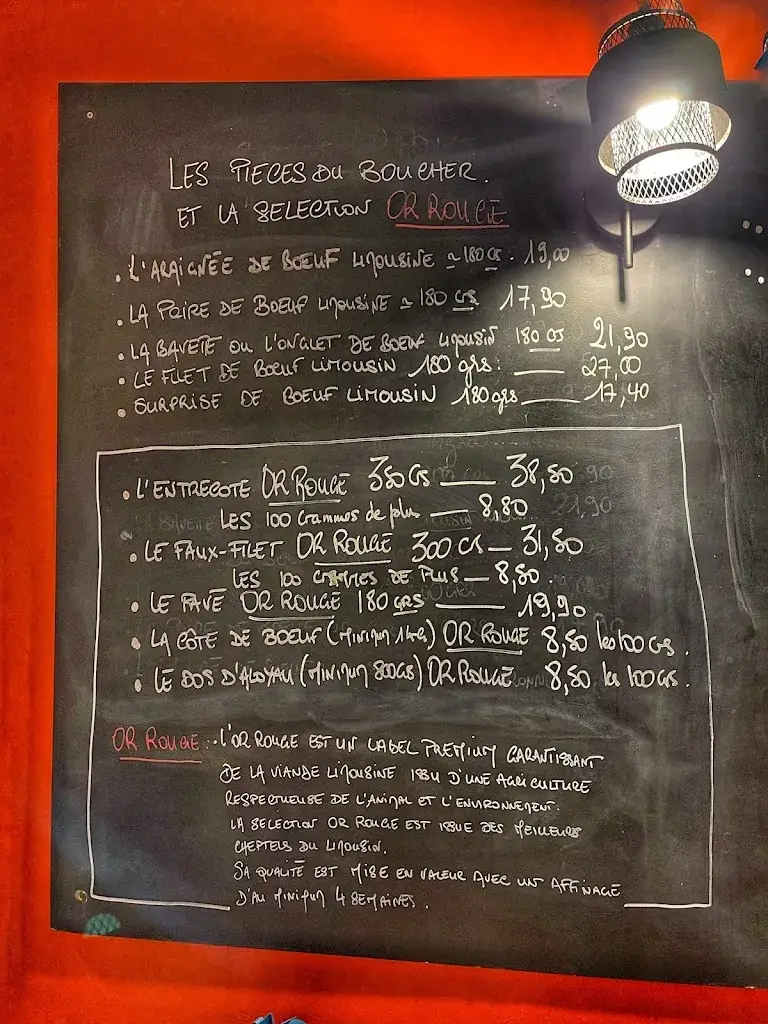 LES PIECES DU BOUCHER.
ET LA SELECTION OR ROUGE
. L'ARAIGNÉE DE BŒUF LIMOUSINE ≃ 180 GS. 19,00
. LA POIRE DE BOEUF LIMOUSINE ≃ 180 GS 17,90
. LA BAVETE OU L'ONGLET DE BOEUF LIMOUSIN 180 GS 21,90
. LE FILET DE BOEUF LIMOUSIN 180 grs: — 27,00
. SURPRISE DE BOEUF LIMOUSIN 180 grs — 17,40
. L'ENTRECOTE OR ROUGE 350 GS — 38,50
LES 100 Grammes de plus — 8,80
. LE FAUX-FILET OR ROUGE 300 GS — 31,50
LES 100 GRAMMES DE PLUS — 8,50.
. LE PAVÉ OR ROUGE 180 GRS — 19,90
. LA CÔTE DE BOEUF (MINIMUM 1KG) OR ROUGE 8,50 les 100 GS.
. LE DOS D'ALOYAU (MINIMUM 800GS) OR ROUGE 8,50 les 100 GS.
OR ROUGE : L'OR ROUGE EST UN LABEL PREMIUM GARANTISSANT
DE LA VIANDE LIMOUSINE ISSU D'UNE AGRICULTURE
RESPECTUEUSE DE L'ANIMAL ET L'ENVIRONNEMENT.
LA SELECTION OR ROUGE EST ISSUE DES MEILLEURS
CHEPTELS DU LIMOUSIN.
SA QUALITÉ EST MISE EN VALEUR AVEC UN AFFINAGE
D'AU MINIMUM 4 SEMAINES.